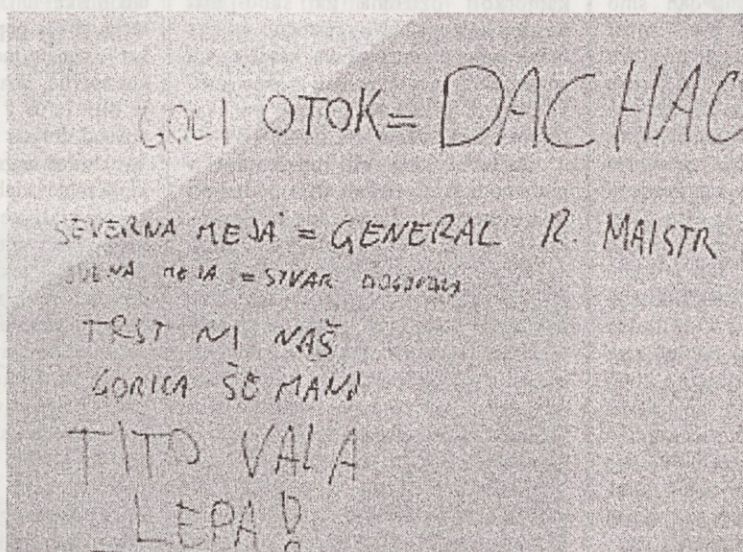 GOLI OTOK = DACHAU
SEVERNA MEJA = GENERAL R. MAISTR
JUŽNA MEJA = STVAR DOGOVORA
TRST NI NAŠ
GORICA ŠE MANJ
TITO VALA
LEPA!